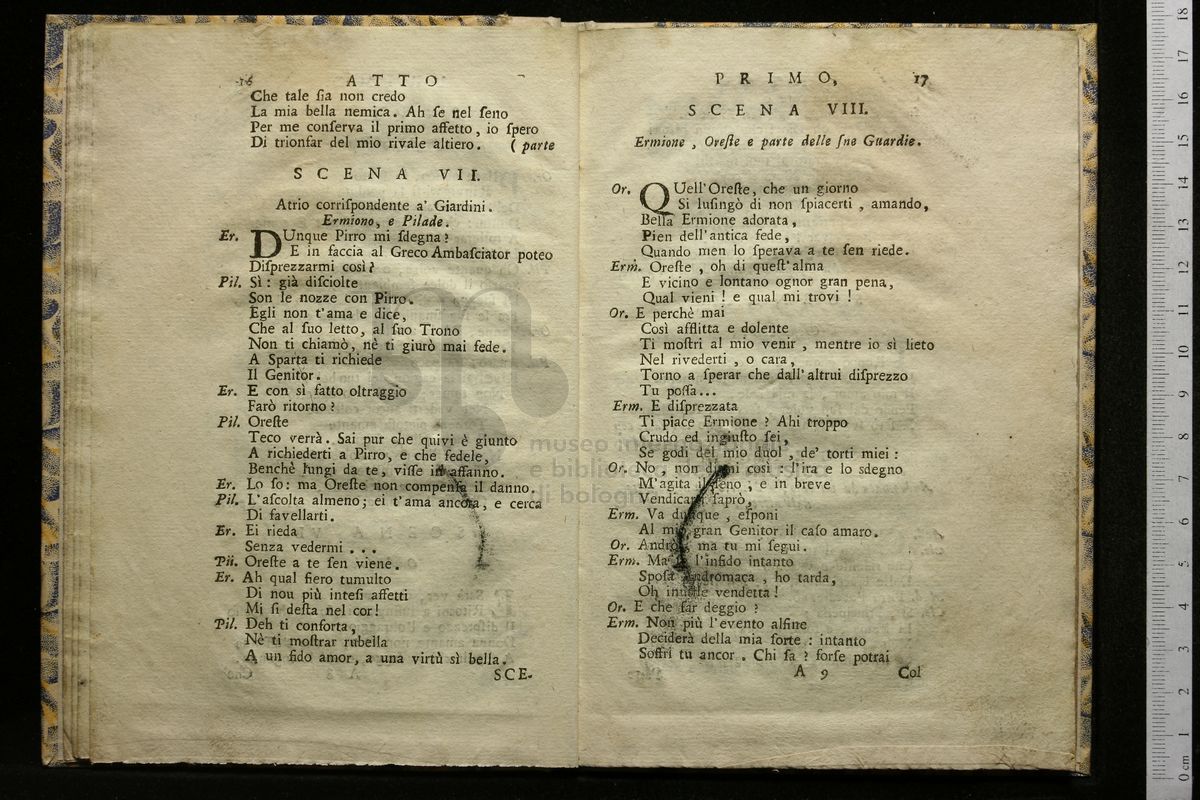 16 ATTO
Che tale ſia non credo
La mia bella nemica. Ah ſe nel ſeno
Per me conſerva il primo affetto, io ſpero
Di trionfar del mio rivale altiero. (parte
SCENA VII.
Atrio corriſpondente a' Giardini.
Ermiono, e Pilade.
Er. DUnque Pirro mi ſdegna?
E in faccia al Greco Ambaſciator poteo
Diſprezzarmi così?
Pil. Sì: già diſciolte
Son le nozze con Pirro.
Egli non t'ama e dice,
Che al ſuo letto, al ſuo Trono
Non ti chiamò, nè ti giurò mai fede.
A Sparta ti richiede
Il Genitor.
Er. E con sì fatto oltraggio
Farò ritorno?
Pil. Oreſte
Teco verrà. Sai pur che quivi è giunto
A richiederti a Pirro, e che fedele,
Benchè lungi da te, viſſe in affanno.
Er. Lo ſo: ma Oreſte non compenſa il danno.
Pil. L'aſcolta almeno; ei t'ama ancora, e cerca
Di favellarti.
Er. Ei rieda
Senza vedermi ...
Pil. Oreſte a te ſen viene.
Er. Ah qual fiero tumulto
Di nou più inteſi affetti
Mi ſi deſta nel cor!
Pil. Deh ti conforta,
Nè ti moſtrar rubella
A un fido amor, a una virtù sì bella.
SCE-
PRIMO, 17
SCENA VIII.
Ermione, Oreſte e parte delle ſne Guardie.
Or. QUell'Oreſte, che un giorno
Si luſingò di non ſpiacerti, amando,
Bella Ermione adorata,
Pien dell'antica fede,
Quando men lo ſperava a te ſen riede.
Erm. Oreſte, oh di queſt'alma
E vicino e lontano ognor gran pena,
Qual vieni! e qual mi trovi!
Or. E perchè mai
Così afflitta e dolente
Ti moſtri al mio venir, mentre io sì lieto
Nel rivederti, o cara,
Torno a ſperar che dall'altrui diſprezzo
Tu poſſa...
Erm. E diſprezzata
Ti piace Ermione? Ahi troppo
Crudo ed ingiuſto ſei,
Se godi del mio duol, de' torti miei:
Or. No, non dirmi così: l'ira e lo sdegno
M'agita il ſeno, e in breve
Vendicarti ſaprò,
Erm. Va dunque, eſponi
Al mio gran Genitor il caſo amaro.
Or. Andrò, ma tu mi ſegui.
Erm. Ma l'infido intanto
Spoſa Andromaca, ho tarda,
Oh inutile vendetta!
Or. E che far deggio?
Erm. Non più l'evento alfine
Deciderà della mia ſorte: intanto
Soffri tu ancor. Chi ſa? forſe potrai
A 9 Col
museo internazionale
e biblioteca
di bologna
0 cm 1 2 3 4 5 6 7 8 9 10 11 12 13 14 15 16 17 18